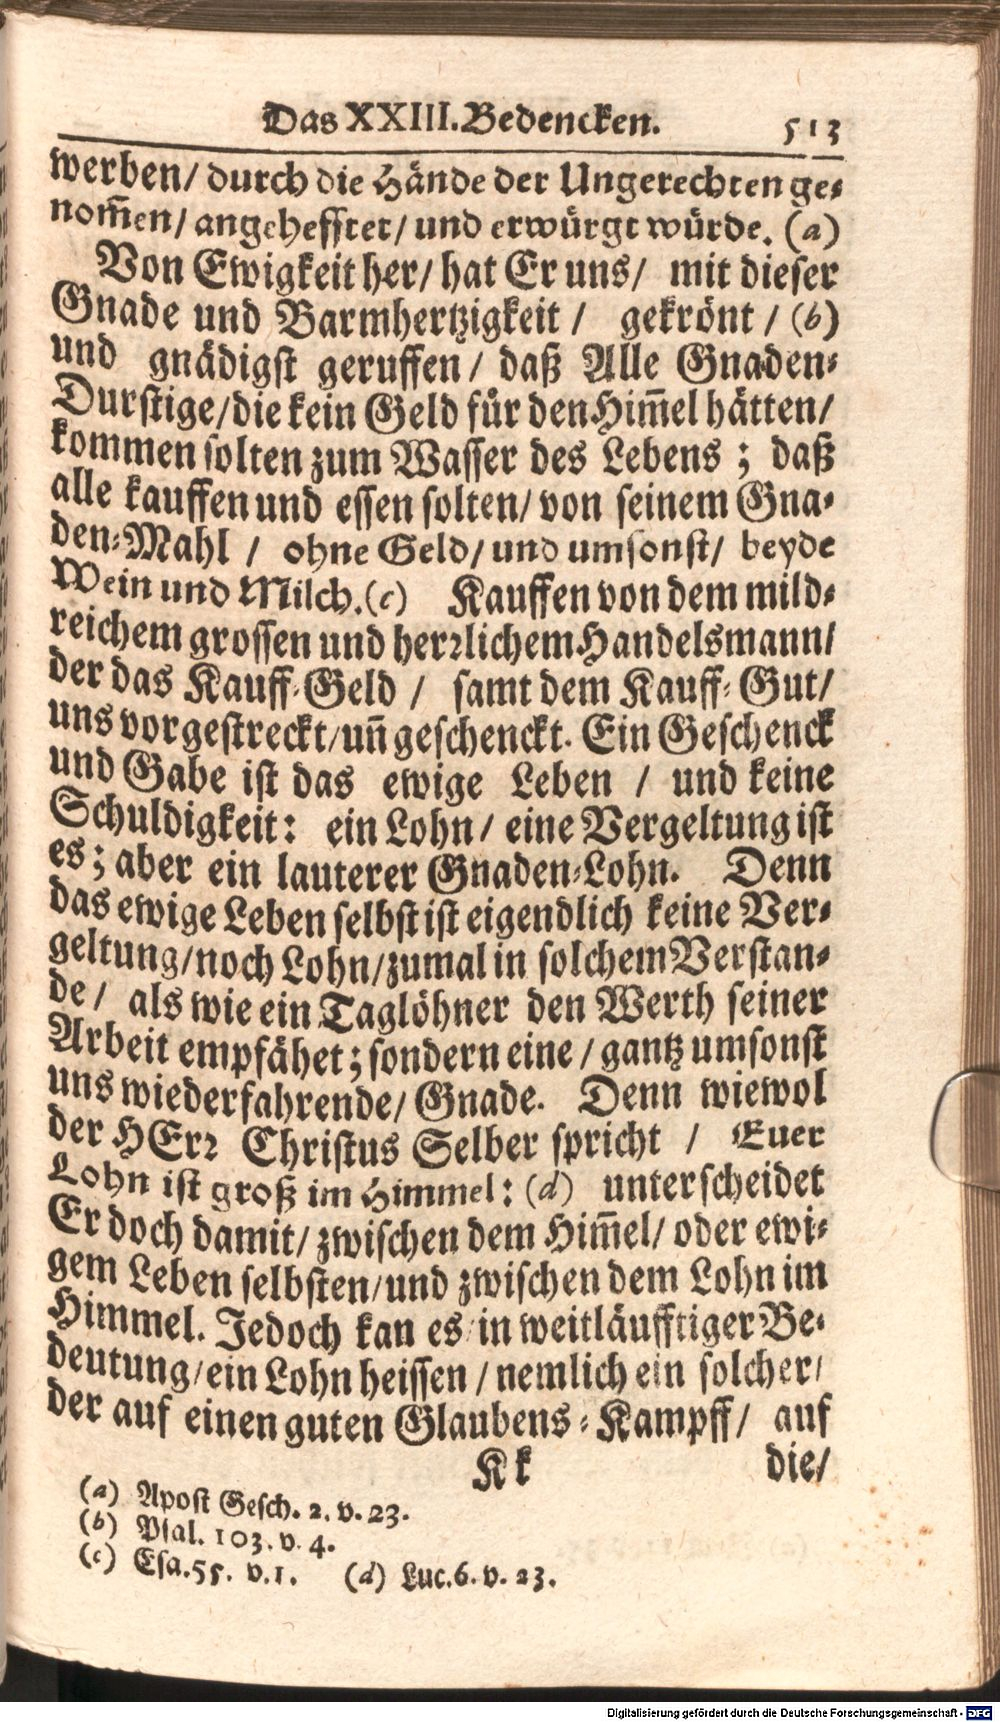 Das XXIII. Bedencken. 513
werben/ durch die Hände der Ungerechten ge-
nom̃en/ angehefftet/ und erwürgt würde. (a)
Von Ewigkeit her/ hat Er uns/ mit dieser
Gnade und Barmhertzigkeit / gekrönt / (b)
und gnädigst geruffen / daß Alle Gnaden-
Durstige/ die kein Geld für den Him̃el hätten/
kommen solten zum Wasser des Lebens ; daß
alle kauffen und essen solten/ von seinem Gna-
den-Mahl / ohne Geld/ und umsonst/ beyde
Wein und Milch. (c) Kauffen von dem mild-
reichem grossen und herꝛlichem Handelsmann/
der das Kauff-Geld / samt dem Kauff-Gut/
uns vorgestreckt/ uñ geschenckt. Ein Geschenck
und Gabe ist das ewige Leben / und keine
Schuldigkeit: ein Lohn/ eine Vergeltung ist
es; aber ein lauterer Gnaden-Lohn. Denn
das ewige Leben selbst ist eigendlich keine Ver-
geltung/ noch Lohn/ zumal in solchem Verstan-
de/ als wie ein Taglöhner den Werth seiner
Arbeit empfähet; sondern eine/ gantz umsonst
uns wiederfahrende/ Gnade. Denn wiewol
der HErꝛ Christus Selber spricht / Euer
Lohn ist groß im Himmel: (d) unterscheidet
Er doch damit/ zwischen dem Him̃el/ oder ewi-
gem Leben selbsten/ und zwischen dem Lohn im
Himmel. Jedoch kan es in weitläufftiger Be-
deutung/ ein Lohn heissen / nemlich ein solcher/
der auf einen guten Glaubens-Kampff/ auf
Kk die/
(a) Apost Gesch. 2. v. 23.
(b) Psal. 103. v. 4.
(c) Esa. 55. v. 1. (d) Luc. 6. v. 23.
Digitalisierung gefördert durch die Deutsche Forschungsgemeinschaft - DFG